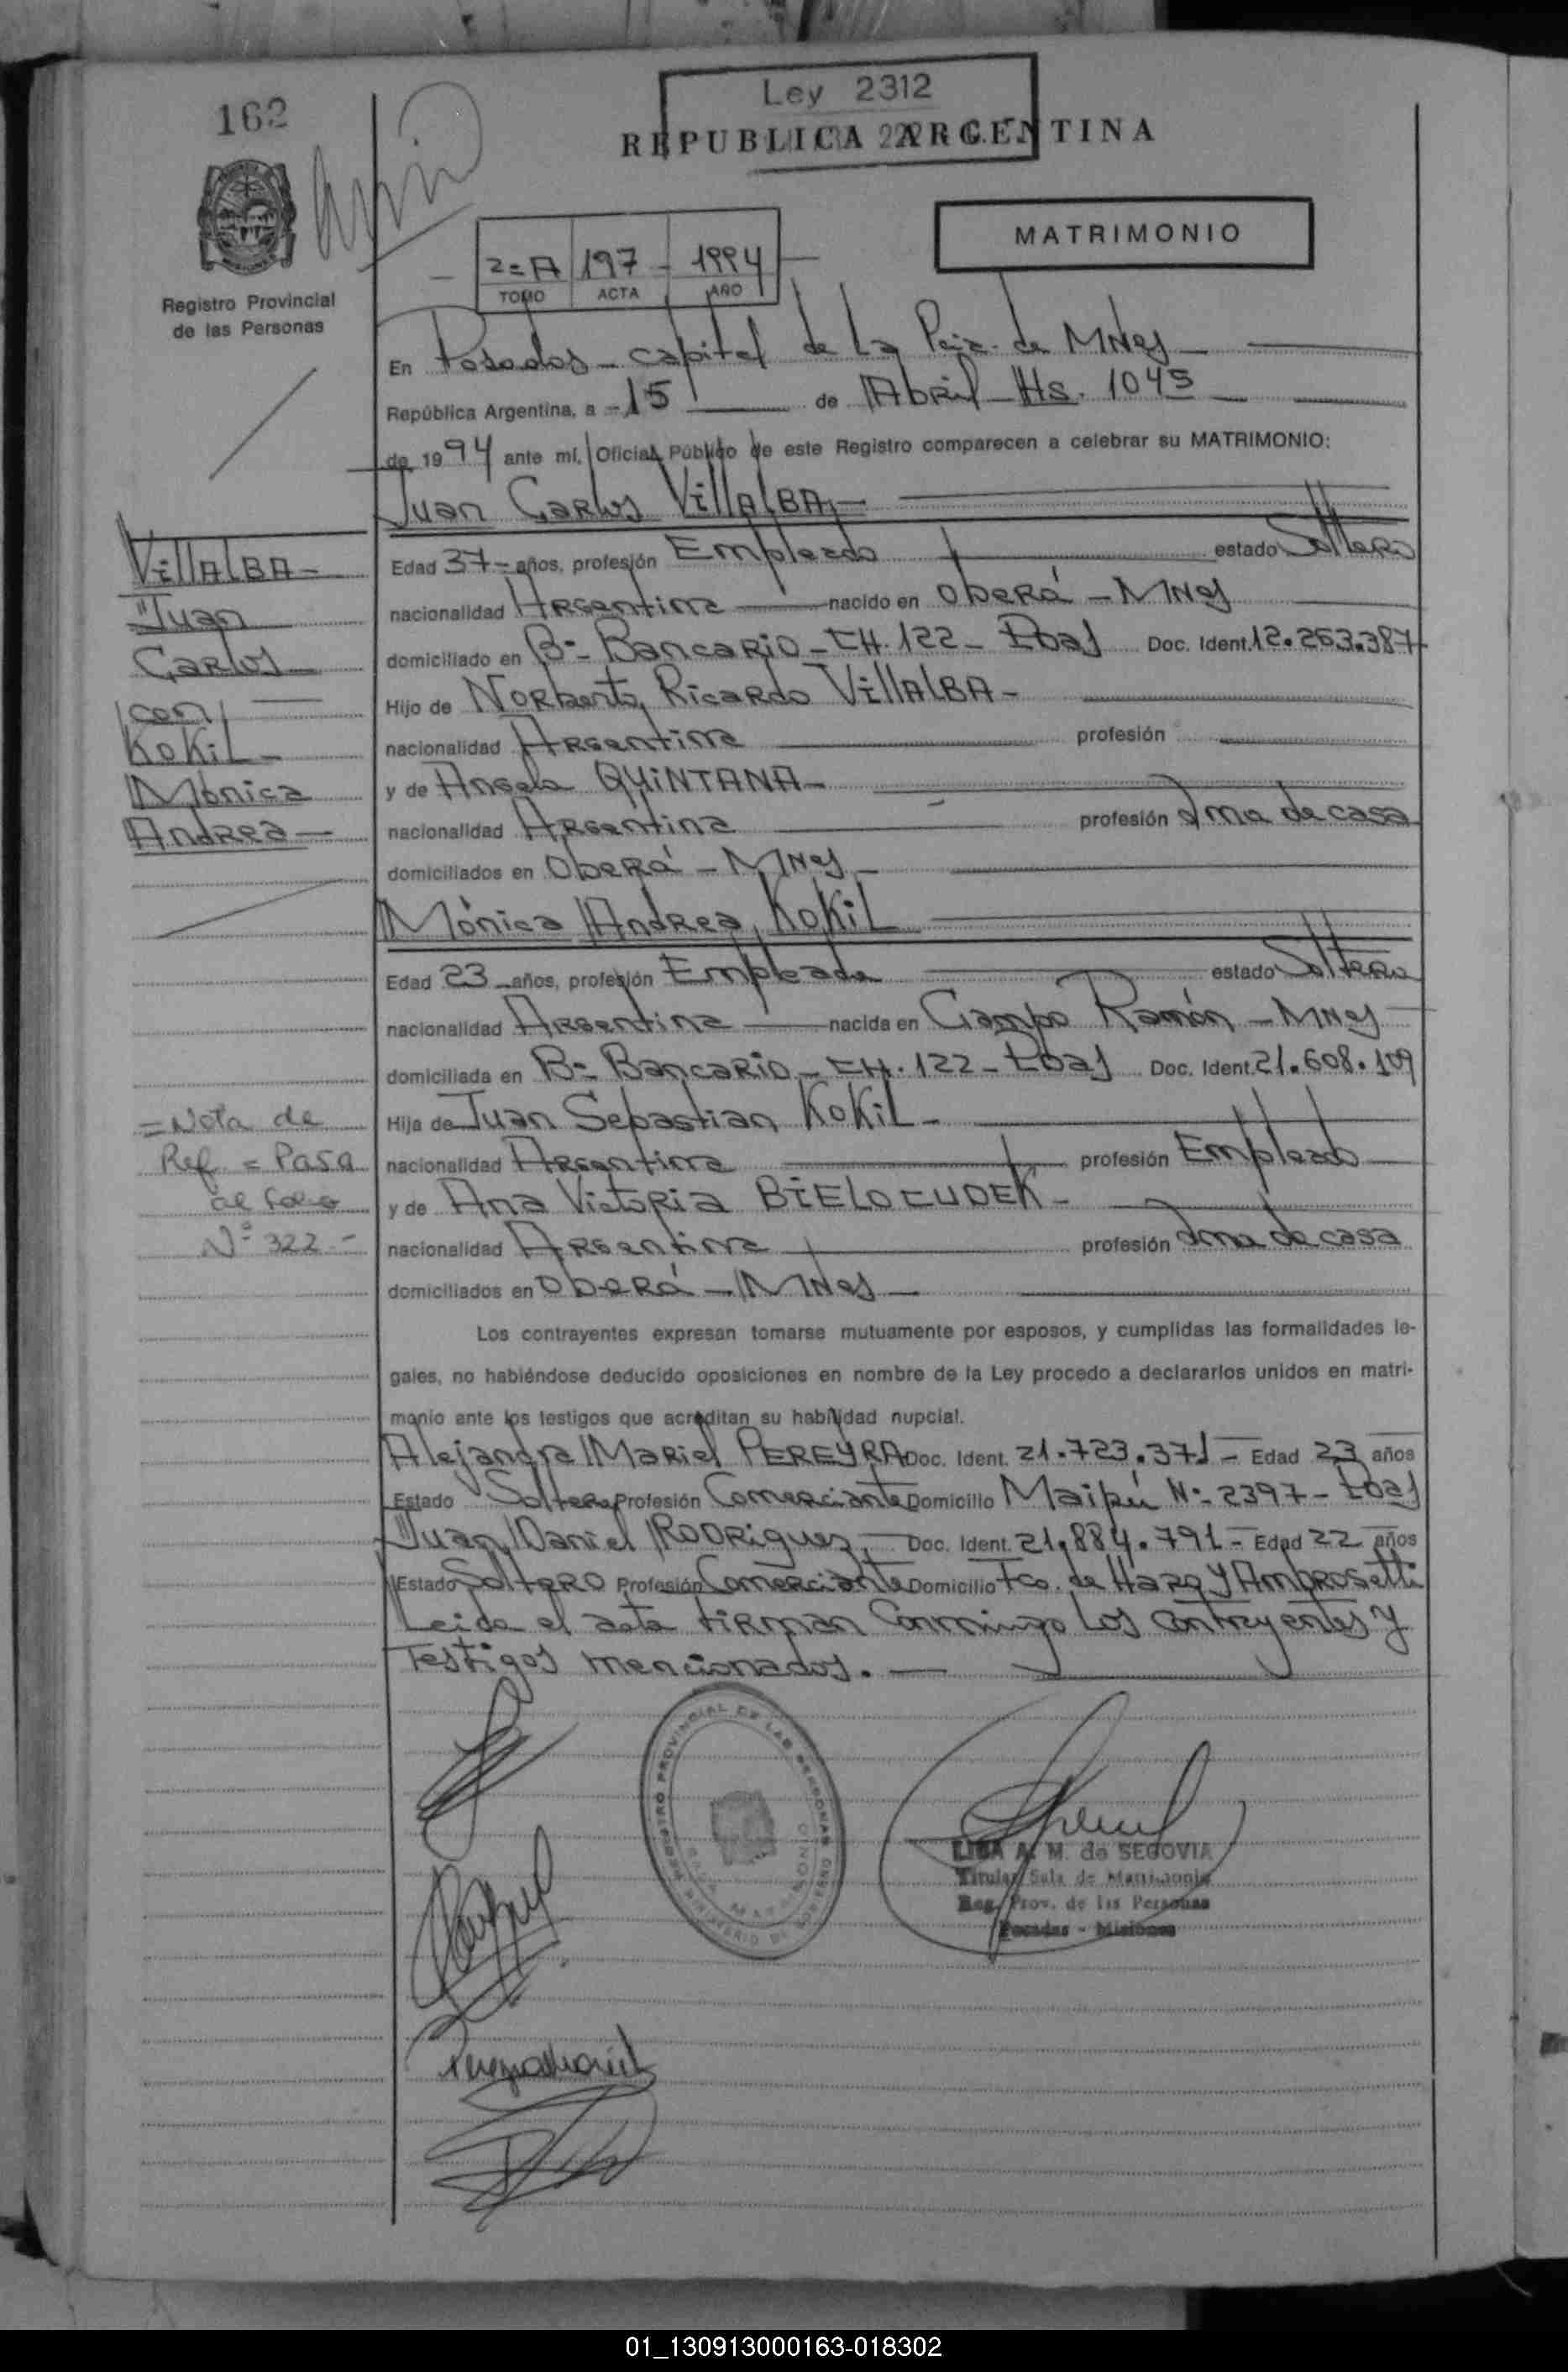 162
Ley 2312
REPUBLICA ARGENTINA
MATRIMONIO
2=A 197 - 1994
TOMO ACTA AÑO
Registro Provincial
de las Personas
En Posadas - capital de La Pcia. de MNes
República Argentina, a - 15 de Abril - Hs. 1045
de 1994 ante mí, Oficial Público de este Registro comparecen a celebrar su MATRIMONIO:
Juan Carlos VillALBA -
Edad 37 - años, profesión Empleado estado Soltero
nacionalidad Argentina nacido en Oberá - MNes
domiciliado en Bº - Bancario - CH. 122 - Pdas Doc. Ident. 12.263.387
Hijo de Norberto Ricardo VillALBA -
nacionalidad Argentina profesión
y de Angela QUiNTANA -
nacionalidad Argentina profesión Ama de casa
domiciliados en Oberá - MNes
Mónica Andrea KoKiL
Edad 23 - años, profesión Empleada estado Soltera
nacionalidad Argentina nacida en Campo Ramón - MNes
domiciliada en Bº - Bancario - CH. 122 - Pdas Doc. Ident. 21.608.109
Hija de Juan Sebastian KoKiL -
nacionalidad Argentina profesión Empleado
y de Ana Victoria BiELOCUDEK -
nacionalidad Argentina profesión Ama de casa
domiciliados en Oberá - MNes
Los contrayentes expresan tomarse mutuamente por esposos, y cumplidas las formalidades le-
gales, no habiéndose deducido oposiciones en nombre de la Ley procedo a declararlos unidos en matri-
monio ante los testigos que acreditan su habilidad nupcial.
Alejandra Mariel PEREYRA Doc. Ident. 21.723.371 - Edad 23 años
Estado Soltera Profesión Comerciante Domicilio Maipú Nº - 2397 - Pdas
Juan Daniel Rodriguez - Doc. Ident. 21.884.791 - Edad 22 años
Estado Soltero Profesión Comerciante Domicilio Fco. de Haro y Ambrosetti
Leida el acta firman Conmingo Los contrayentes y
Testigos mencionados. -
VillALBA -
Juan
Carlos
con
KoKiL -
Mónica
Andrea -
= Nota de
Ref = Pasa
al folio
Nº 322 -
REGISTRO PROVINCIAL DE LAS PERSONAS
MINISTERIO DE GOBIERNO
SALA MATRIMONIO
LIDA A. M. de SEGOVIA
Titular Sala de Matrimonio
Reg. Prov. de las Personas
Posadas - Misiones
01_130913000163-018302